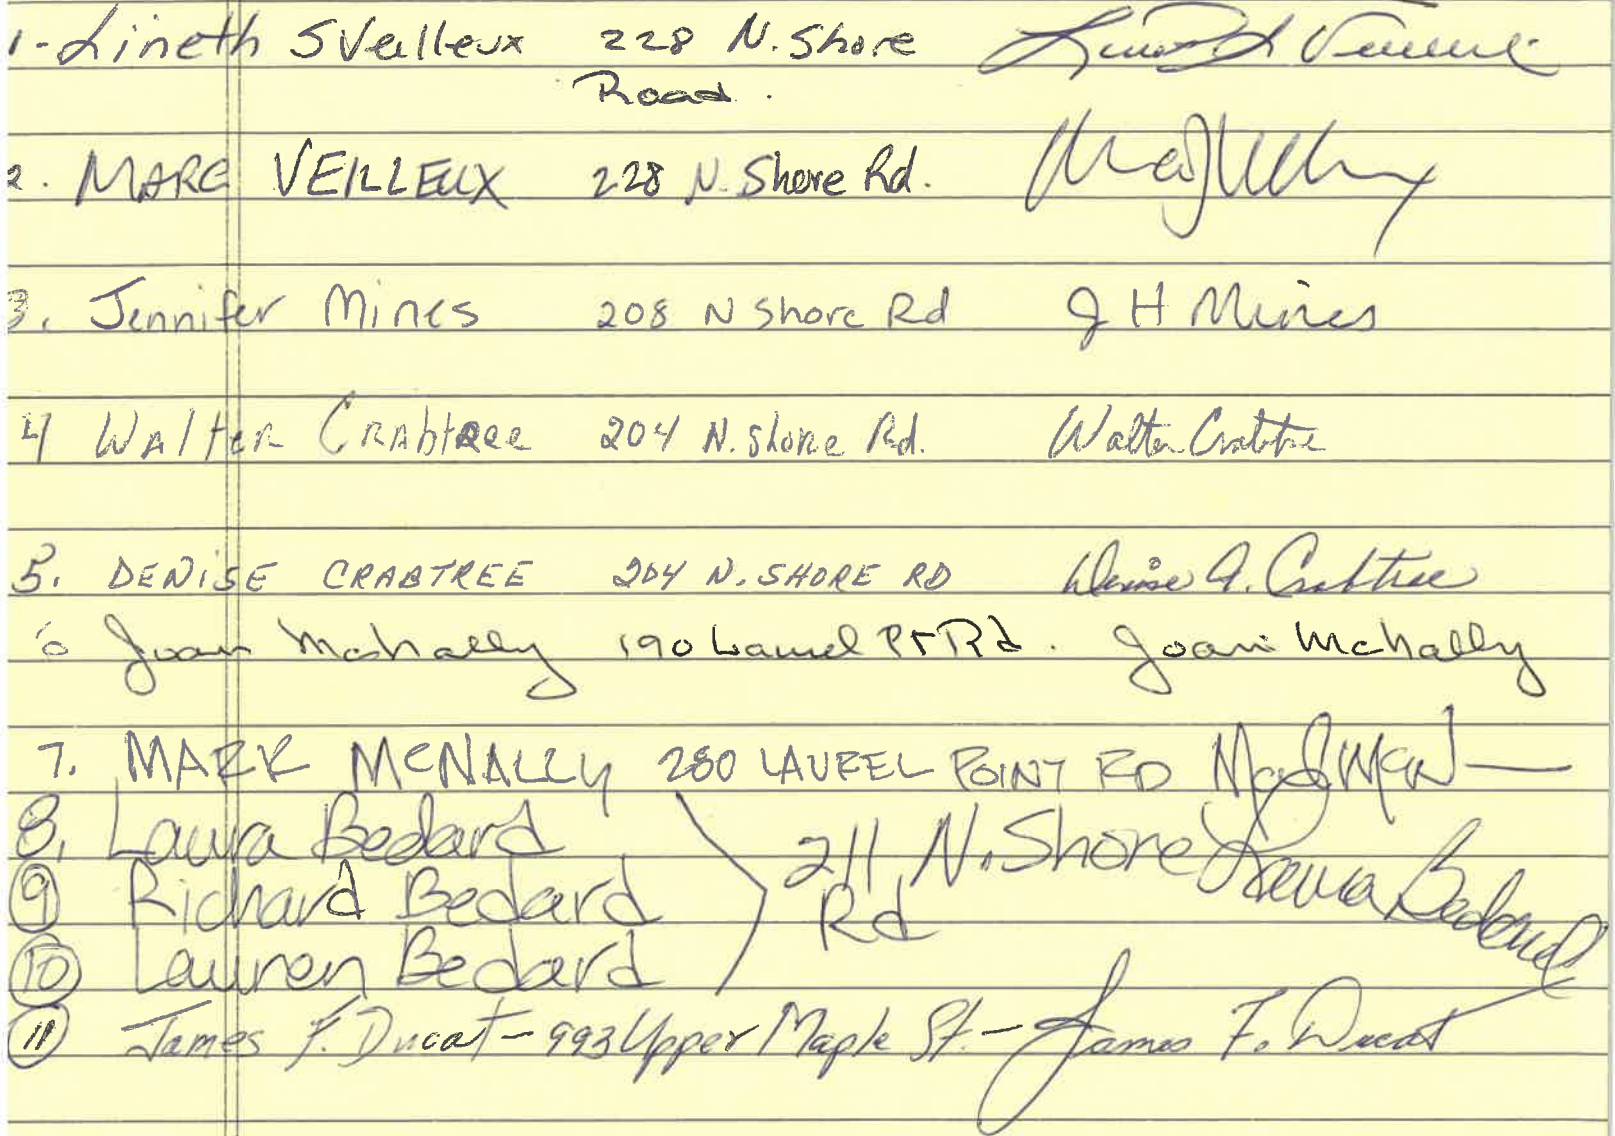 1- Lineth SVeilleux 228 N. Shore
Road.
2. MARC VEILLEUX 228 N. Shore Rd.
3. Jennifer Mines 208 N Shore Rd J H Mines
4 Walter Crabtree 204 N. Shore Rd. Walter Crabtree
5. DENISE CRABTREE 204 N. SHORE RD Denise A. Crabtree
6 Joan McNally 190 Laurel Pt Rd. Joan McNally
7. MARK MCNALLY 280 LAUREL POINT RD
8. Laura Bedard
9 Richard Bedard 211 N. Shore Laura Bedard
Rd
10 Lauren Bedard
11 James F. Ducat - 993 Upper Maple St. - James F. Ducat